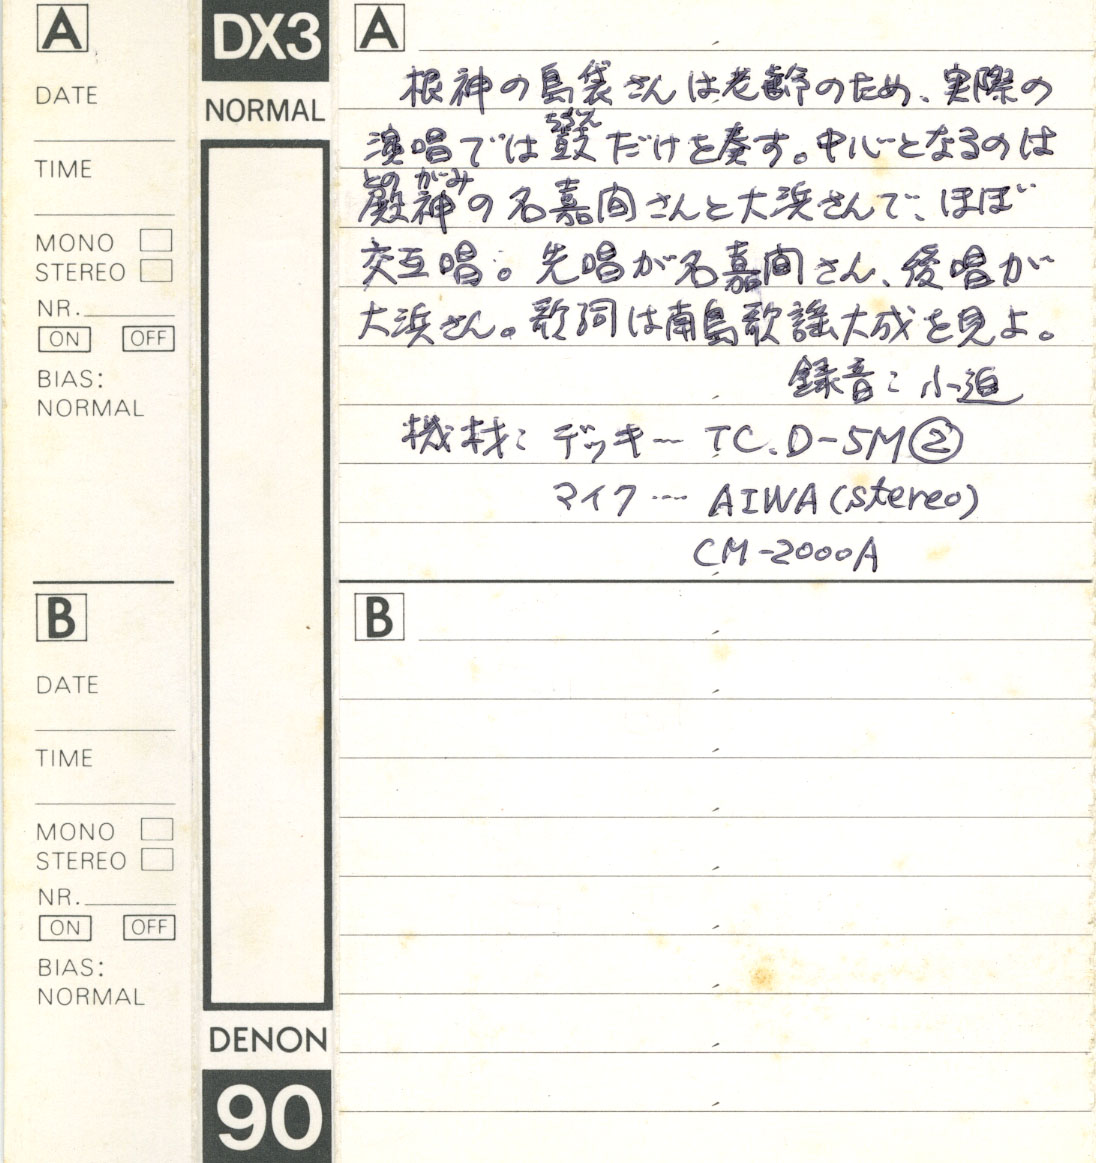 A
DATE
TIME
MONO
STEREO
NR.
ON OFF
BIAS:
NORMAL
B
DATE
TIME
MONO
STEREO
NR.
ON OFF
BIAS:
NORMAL
DX3
NORMAL
DENON
90
A
根神の島袋さんは老齢のため、実際の
演唱では鼓だけを奏す。中心となるのは
とのがみ
殿神の名嘉間さんと大浜さんで、ほぼ
交互唱。先唱が名嘉間さん、後唱が
大浜さん。歌詞は南島歌謡大成を見よ。
録音:小迫
機材:デッキ… TC.D-5M②
マイク… AIWA(stereo)
CM-2000A
B